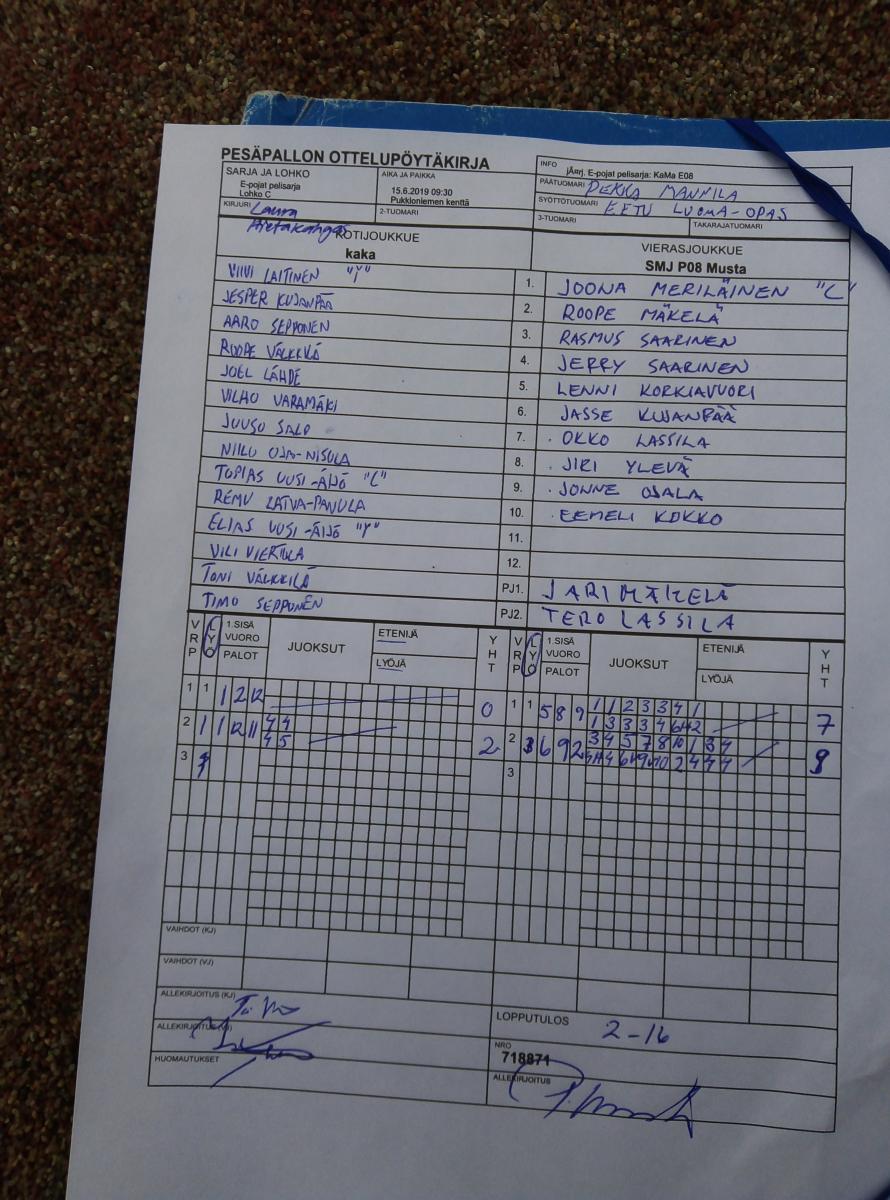 PESÄPALLON OTTELUPÖYTÄKIRJA
SARJA JA LOHKO
E-pojat pelisarja
Lohko C
AIKA JA PAIKKA
15.6.2019 09:30
Pukkloniemen kenttä
INFO
jÄrrj. E-pojat pelisarja: KaMa E08
PÄÄTUOMARI PEKKA MANNILA
SYÖTTÖTUOMARI EETU LUOMA-OPAS
KIRJURI Laura
2-TUOMARI
3-TUOMARI
TAKARAJATUOMARI
KOTIJOUKKUE
kaka
VIERASJOUKKUE
SMJ P08 Musta
VIIVI LAITINEN "Y"
JESPER KUJANPÄÄ
AARO SEPPONEN
ROOPE VÄLKKILÄ
JOEL LÄHDE
VILHO VARAMÄKI
JUUSO SALO
NIILO OJA-NISULA
TOPIAS UUSI-ÄIJÖ "C"
REMU LATVA-PANULA
ELIAS UUSI-ÄIJÖ "Y"
VILI VIERTOLA
TONI VÄLKKILÄ
TIMO SEPPONEN
1. JOONA MERILÄINEN "C"
2. ROOPE MÄKELÄ
3. RASMUS SAARINEN
4. JERRY SAARINEN
5. LENNI KORKIAVUORI
6. JASSE KUJANPÄÄ
7. OKKO LASSILA
8. JIRI YLEVÄ
9. JONNE OJALA
10. EEMELI KOKKO
11.
12.
PJ1. JARI MÄKELÄ
PJ2. TERO LASSILA
VRP LYÖ 1.SISÄ VUORO PALOT JUOKSUT ETENIJÄ LYÖJÄ YHT
VRP LYÖ 1.SISÄ VUORO PALOT JUOKSUT ETENIJÄ LYÖJÄ YHT
1 1 1 2 12 0
2 1 1 12 11 4 4 2
4 5
3
1 1 5 8 9 1 1 2 3 3 4 1 7
2 6 9 2 3 4 5 7 8 10 1 3 4 9
3
VAIHDOT (KJ)
VAIHDOT (VJ)
ALLEKIRJOITUS (KJ)
ALLEKIRJOITUS (VJ)
HUOMAUTUKSET
LOPPUTULOS 2-16
NRO
718871
ALLEKIRJOITUS